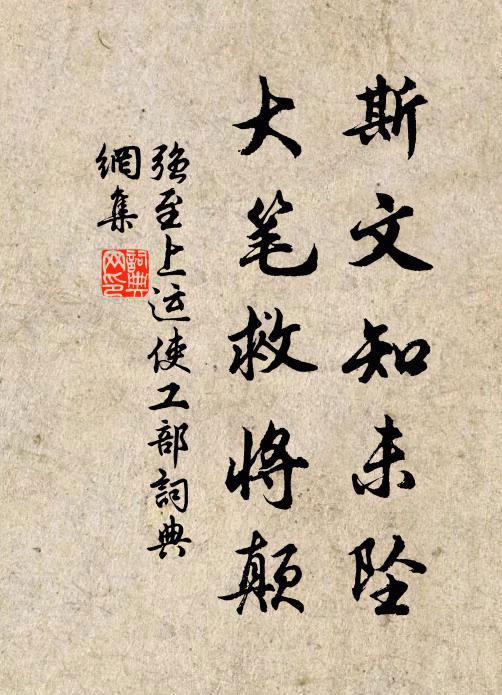 斯文知未坠
大笔救将颠
强至上运使工部詞典
網集
詞典網印